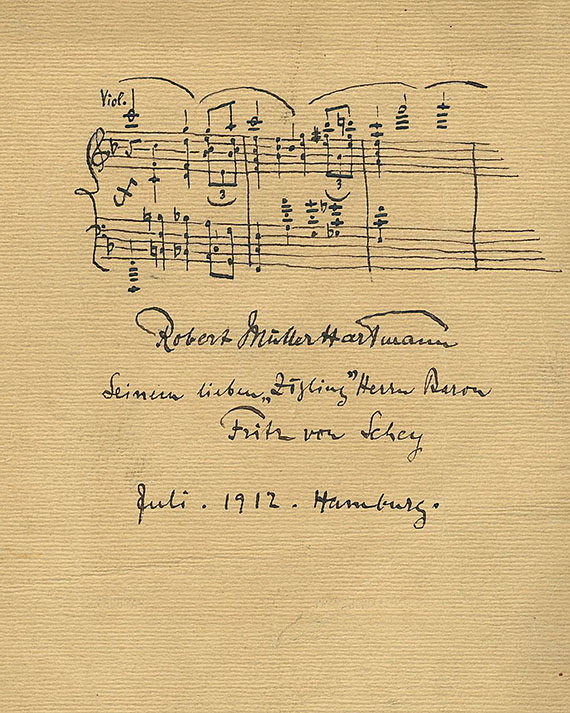 Viol.
3
3
Robert Müller Hartmann
Seinem lieben „Zögling" Herrn Baron
Fritz von Schey
Juli . 1912 . Hamburg.